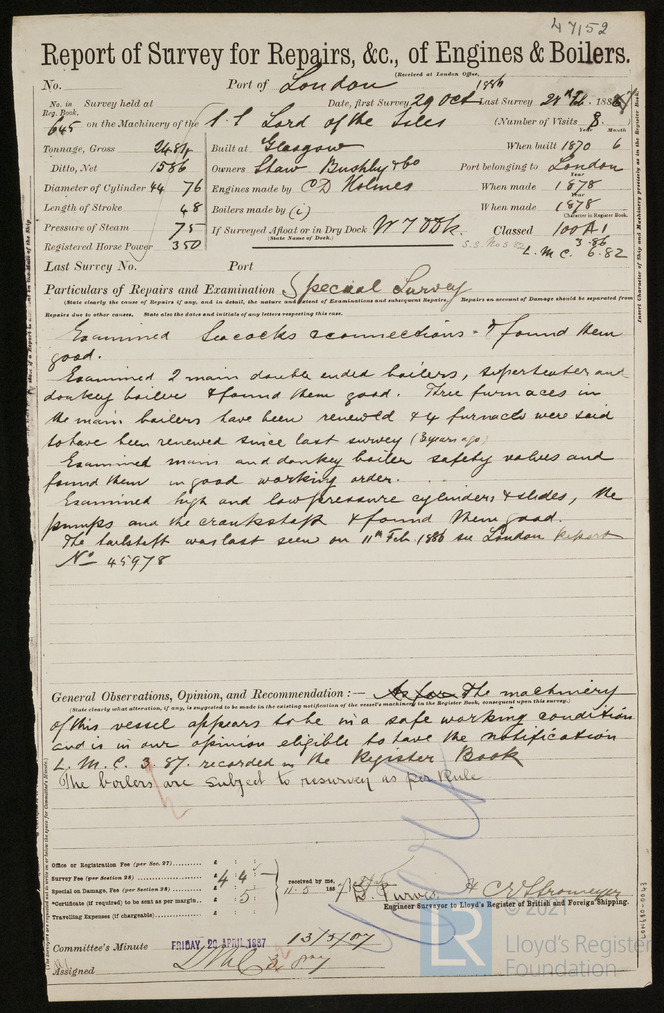 47152
Report of Survey for Repairs, &c., of Engines & Boilers.
(Received at London Office,
No. Port of London
No. in Reg. Book. Survey held at Date, first Survey 29 Oct 1886 Last Survey 28th Feb. 1887
645 on the Machinery of the s.s Lord of the Isles (Number of Visits 8.)
Tonnage, Gross 2484 Built at Glasgow When built Year 1870 Month 6
Ditto, Net 1586 Owners Shaw Bushby & Co Port belonging to London
Diameter of Cylinder 44 76 Engines made by C D Holmes When made Year 1878
Length of Stroke 48 Boilers made by (i) When made Year 1878
Pressure of Steam 75 If Surveyed Afloat or in Dry Dock W I Dk. Classed Character in Register Book. 100A1
(State Name of Dock.) S.S. No 3.82 3.86
Registered Horse Power 350 L.M.C. 6.82
Last Survey No. Port
Particulars of Repairs and Examination Special Survey
(State clearly the cause of Repairs if any, and in detail, the nature and extent of Examinations and subsequent Repairs. Repairs on account of Damage should be separated from
Repairs due to other causes. State also the dates and initials of any letters respecting this case.
Examined Seacocks & connections & found them
good.
Examined 2 main double ended boilers, superheater and
donkey boiler & found them good. Three furnaces in
the main boilers have been renewed & 4 furnaces were said
to have been renewed since last survey (3 years ago)
Examined main and donkey boiler safety valves and
found them in good working order.
Examined high and low pressure cylinders & slides, the
pumps and the crankshaft & found them good.
The tailshaft was last seen on 11th Feb 1886 see London Report
No 45978
General Observations, Opinion, and Recommendation :— As far The machinery
(State clearly what alteration, if any, is suggested to be made in the existing notification of the vessel's machinery in the Register Book, consequent upon this survey.)
of this vessel appears to be in a safe working condition
and is in our opinion eligible to have the notification
L. M. C. 3. 87. recorded in the Register Book
The boilers are subject to resurvey as per Rule
Office or Registration Fee (per Sec. 27)......... £ : :
Survey Fee (per Section 28) ......... £ 4 : 4 :
Special or Damage, Fee (per Section 28) ......... £ : : received by me, 11.5 1887
*Certificate (if required) to be sent as per margin.. £ : 5 :
Travelling Expenses (if chargeable) ......... £ : :
D. Purves & C E Stromeyer
Engineer Surveyor to Lloyd's Register of British and Foreign Shipping.
Committee's Minute FRIDAY 29 APRIL 1887 13/5/87
Assigned LMC 3
Insert Character of Ship and Machinery precisely as in the Register Book
© 2021
LR
Lloyd's Register
Foundation